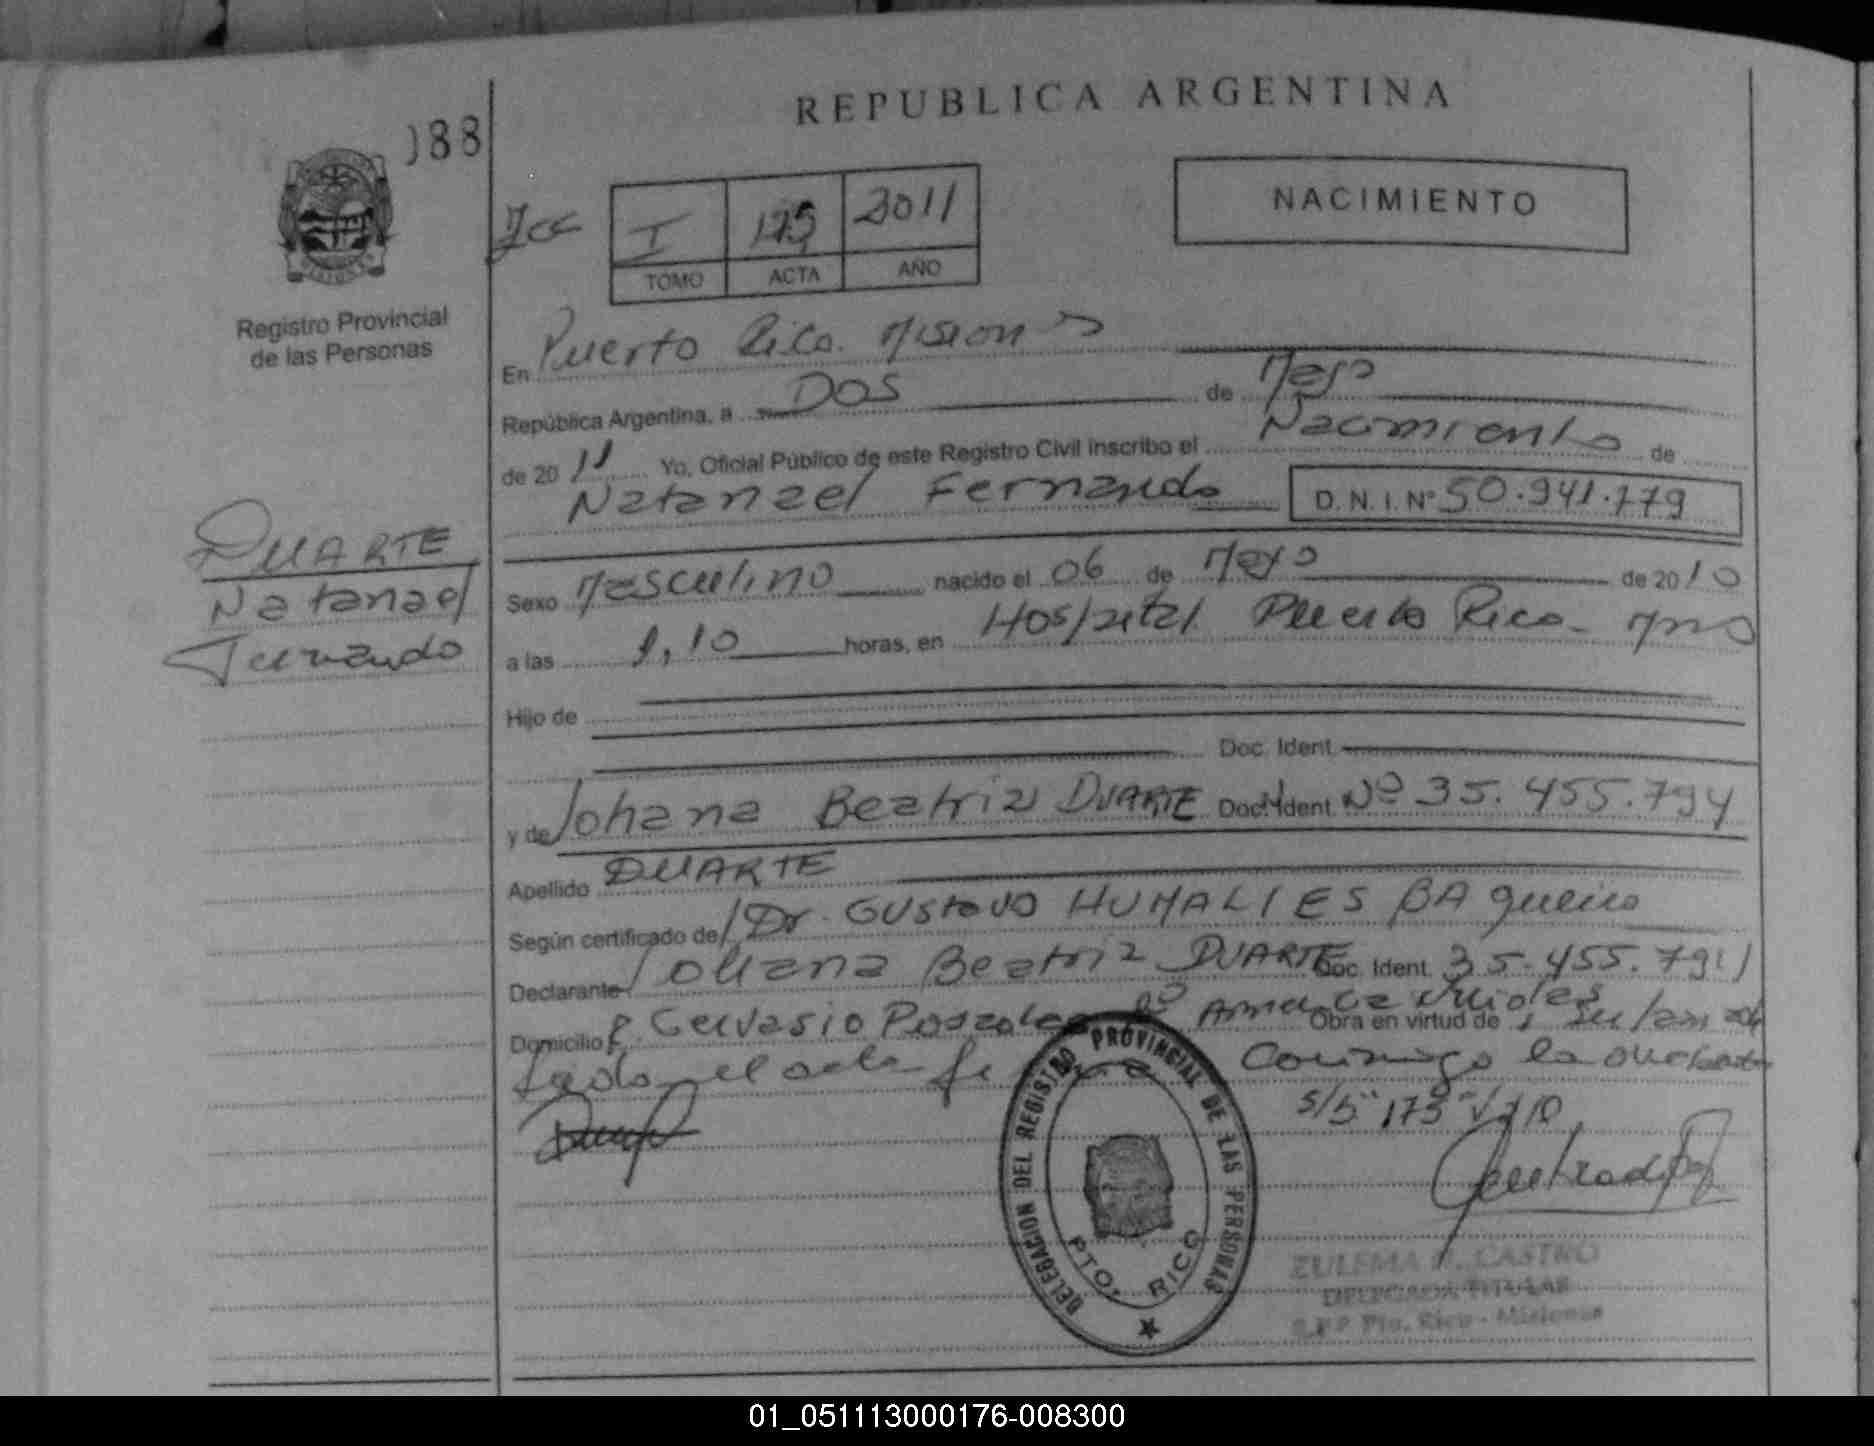 REPUBLICA ARGENTINA
188
NACIMIENTO
I 175 2011
TOMO ACTA AÑO
Registro Provincial
de las Personas
En Puerto Rico. Misiones
República Argentina, a DOS de Mayo
de 2011 Yo, Oficial Público de este Registro Civil inscribo el Nacimiento de
Natanael Fernando D.N.I. Nº 50.941.179
DUARTE
Natanael
Fernando
Sexo Masculino nacido el 06 de Mayo de 2010
a las 1,10 horas, en Hospital Puerto Rico - Mnes
Hijo de
Doc. Ident.
y de Johana Beatriz DUARTE Doc. Ident. Nº 35.455.794
Apellido DUARTE
Según certificado de Dr. Gustavo HUMALIES BAqueiro
Declarante Johana Beatriz DUARTE Doc. Ident. 35.455.794
Domicilio Gervasio Posadas Obra en virtud de
el acta
s/b "175" V
DELEGACION DEL REGISTRO PROVINCIAL DE LAS PERSONAS
PTO. RICO
ZULEMA CASTRO
DELEGADA TITULAR
R.P.P Pto. Rico - Misiones
01_051113000176-008300